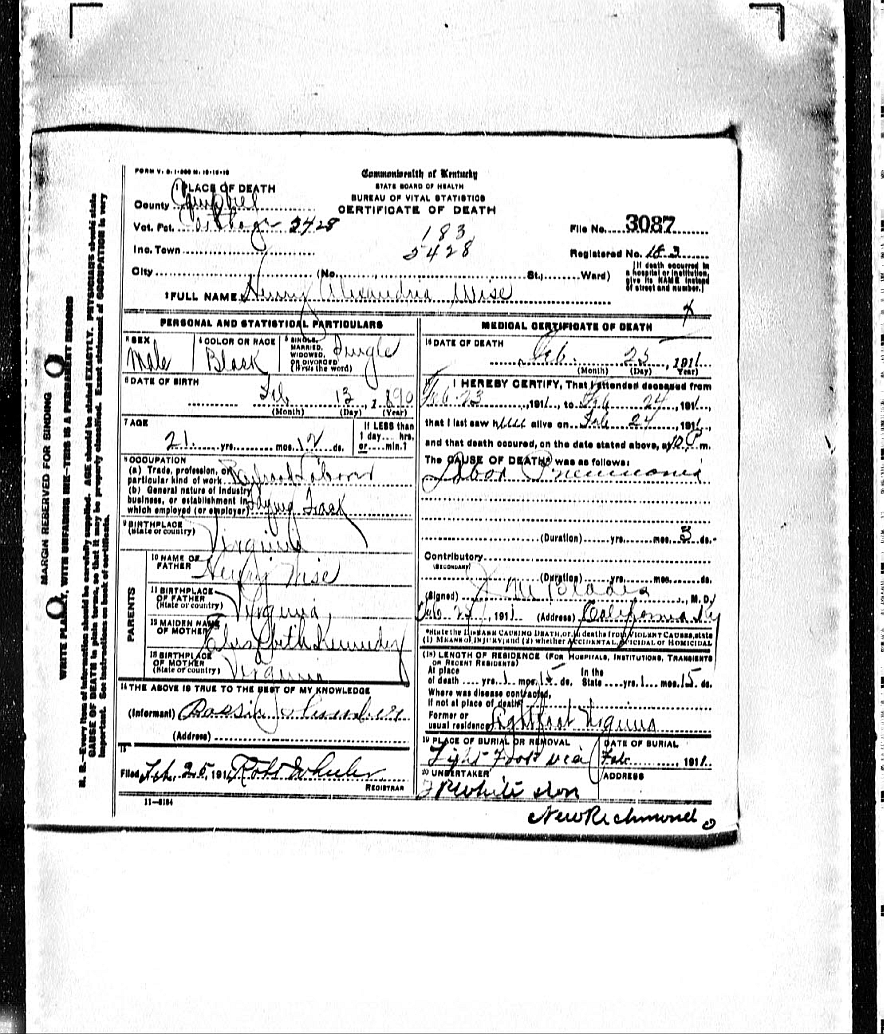 FORM V. S. 1-
Commonwealth of Kentucky
STATE BOARD OF HEALTH
BUREAU OF VITAL STATISTICS
CERTIFICATE OF DEATH
1 PLACE OF DEATH
County Campbell
Vot. Pct. 5428
183
5428
File No. 3087
Inc. Town
Registered No. 183
City (No. St.; Ward)
[If death occurred in a hospital or institution, give its NAME instead of street and number.]
2 FULL NAME Henry Alexandria Wise
PERSONAL AND STATISTICAL PARTICULARS
3 SEX Male
4 COLOR OR RACE Black
5 SINGLE, MARRIED, WIDOWED, OR DIVORCED (Write the word) Single
6 DATE OF BIRTH Feb 13, 1890
(Month) (Day) (Year)
7 AGE 21 yrs. mos. 12 ds.
If LESS than 1 day hrs. or min.?
8 OCCUPATION
(a) Trade, profession, or particular kind of work Railroad Laborer
(b) General nature of industry business, or establishment in which employed (or employer) laying Track
9 BIRTHPLACE (State or country) Virginia
PARENTS
10 NAME OF FATHER Henry Wise
11 BIRTHPLACE OF FATHER (State or country) Virginia
12 MAIDEN NAME OF MOTHER Elisabeth Kennedy
13 BIRTHPLACE OF MOTHER (State or country) Virginia
14 THE ABOVE IS TRUE TO THE BEST OF MY KNOWLEDGE
(Informant)
(Address)
15
Filed Feb. 25, 191 Robt Wheeler
REGISTRAR
11-5184
MEDICAL CERTIFICATE OF DEATH
16 DATE OF DEATH
Feb. 25, 1911
(Month) (Day) Year)
17 I HEREBY CERTIFY, That I attended deceased from
Feb 23, 1911, to Feb 24, 191
that I last saw h alive on Feb 24, 191
and that death occured, on the date stated above, at 10 P m.
The CAUSE OF DEATH* was as follows:
Lobar Pneumonia
(Duration) yrs. mos. 3 ds.
Contributory
(SECONDARY)
(Duration) yrs. mos. ds.
(Signed) J M Blades, M. D.
Feb. 25, 1911 (Address) California Ky
*State the DISEASE CAUSING DEATH, or, in deaths from VIOLENT CAUSES, state
(1) MEANS OF INJURY; and (2) whether ACCIDENTAL, SUICIDAL or HOMICIDAL
18 LENGTH OF RESIDENCE (FOR HOSPITALS, INSTITUTIONS, TRANSIENTS OR RECENT RESIDENTS)
At place of death yrs. 1 mos. 15 ds. In the State yrs. 1 mos. 15 ds.
Where was disease contracted, If not at place of death?
Former or usual residence Lightfoot Virginia
19 PLACE OF BURIAL OR REMOVAL
Light Foot via
DATE OF BURIAL
Feb. 1911
20 UNDERTAKER
White & Son
ADDRESS
New Richmond O
MARGIN RESERVED FOR BINDING
WRITE PLAINLY, WITH UNFADING INK—THIS IS A PERMANENT RECORD
N. B.—Every item of information should be carefully supplied. AGE should be stated EXACTLY. PHYSICIANS should state
CAUSE OF DEATH in plain terms, so that it may be properly classified. Exact statement of OCCUPATION is very
important. See instructions on back of certificate.